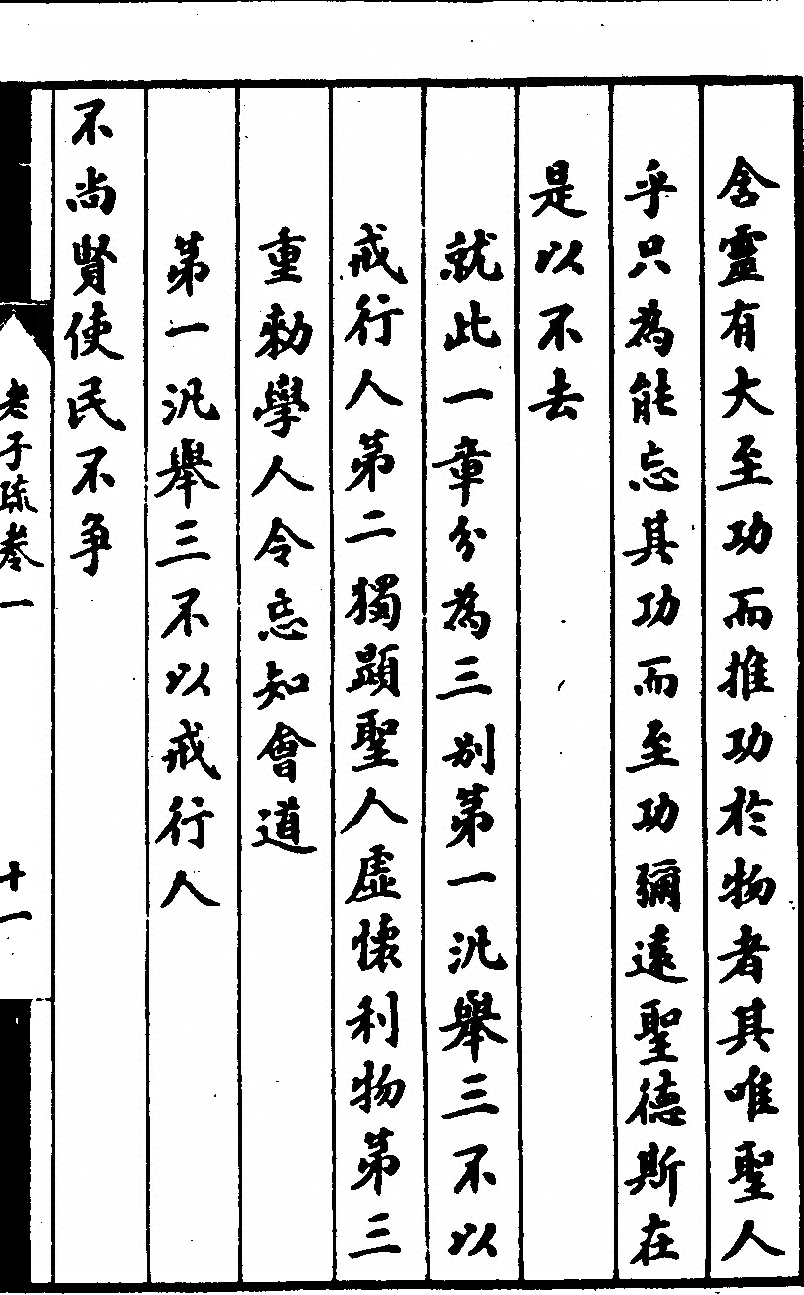 含靈有大至功而推功於物者其唯聖人
乎只為能忘其功而至功彌遠聖德斯在
是以不去
就此一章分為三別第一汎舉三不以
戒行人第二獨顯聖人虛懷利物第三
重勑學人令忘知會道
第一汎舉三不以戒行人
不尚賢使民不爭
老子疏卷一
十一